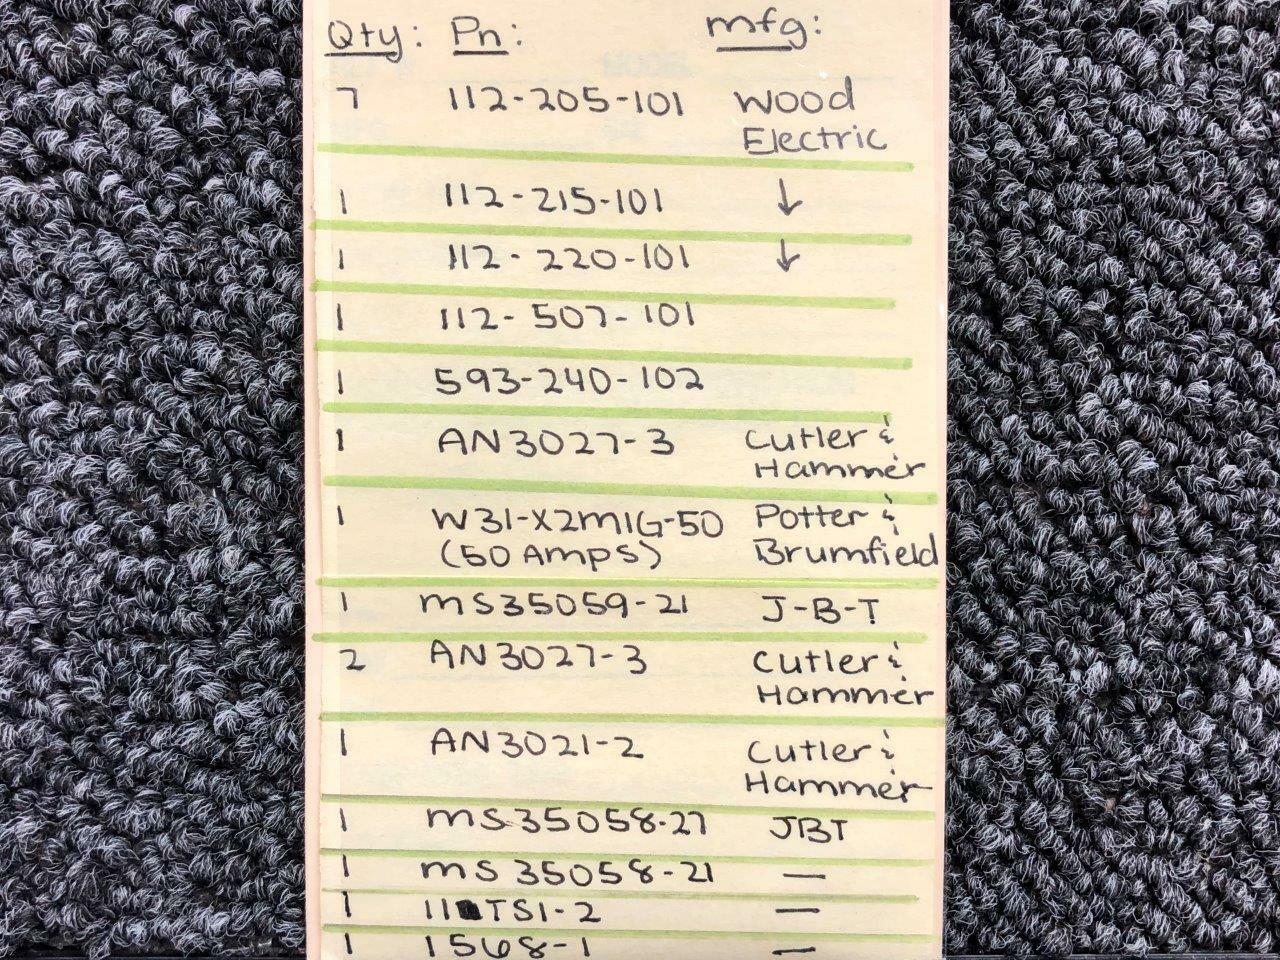 Qty: Pn: mfg:
7 112-205-101 Wood
Electric
1 112-215-101 ↓
1 112-220-101 ↓
1 112-507-101
1 593-240-102
1 AN3027-3 Cutler &
Hammer
1 W31-X2M1G-50 Potter &
(50 Amps) Brumfield
1 MS35059-21 J-B-T
2 AN3027-3 Cutler &
Hammer
1 AN3021-2 Cutler &
Hammer
1 MS35058-27 JBT
1 MS35058-21 —
1 11TS1-2 —
1 1568-1 —